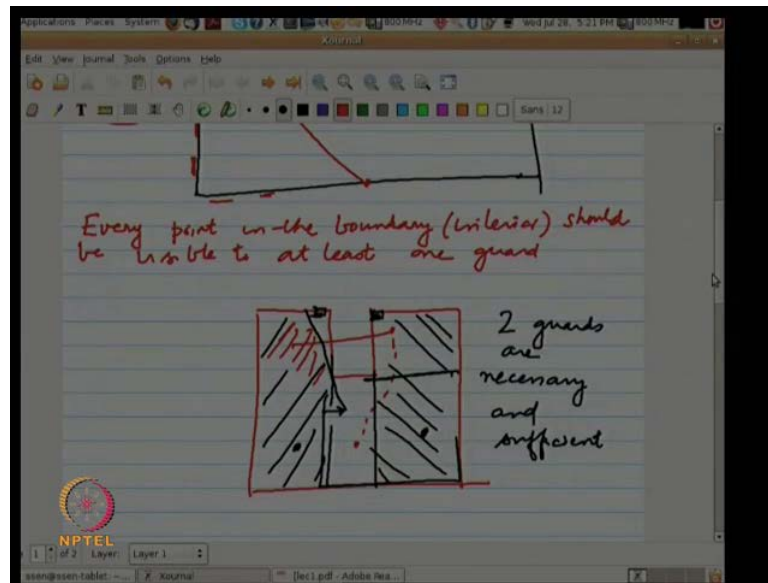 Applications Places System 800 MHz Wed Jul 28, 5:21 PM 800 MHz
Xournal
Edit View Journal Tools Options Help
Sans 12
Every point in the boundary (interior) should
be visible to at least one guard
2 guards
are
necessary
and
sufficient
NPTEL
1 of 2 Layer: Layer 1
ssen@ssen-tablet: ~... Xournal [lec1.pdf - Adobe Rea...